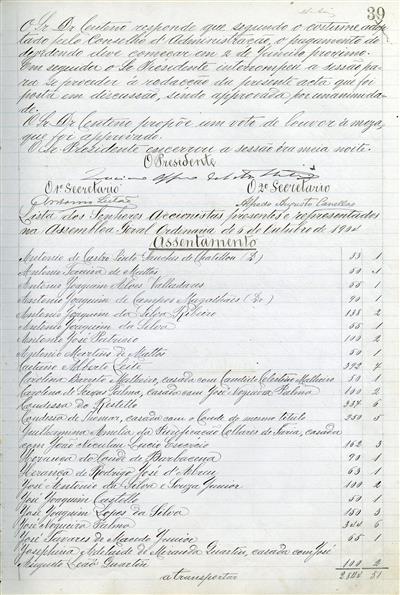 39
O Sr. Dr. Centeno responde que segundo o costume adop-
tado pelo Conselho d'Administração, o pagamento do
dividendo deve começar em 2 de Janeiro proximo.
Em seguida o Sr. Presidente interrompeu a sessão pa-
ra se proceder á redacção da presente acta que foi
posta em discussão, sendo approvada por unanimida-
de.
O Sr. Dr. Centeno propõe um voto de louvor á meza,
que foi approvado.
O Sr. Presidente encerrou a sessão era meia noite.
O Presidente
O 1º Secretario O 2º Secretario
Alfredo Augusto Canellas
Lista dos Senhores Accionistas presentes e representados
na Assemblea Geral Ordinaria, de 4 de Outubro de
Assentamento
Antonio de Castro Pinto Sanches de Chatillon (D.) 53 1
Antonio Ferreira de Mattos 50 1
Antonio Joaquim Alves Valladares 65 1
Antonio Joaquim de Campos Magalhães (Dr.) 90 1
Antonio Joaquim da Silva Ribeiro 138 2
Antonio Joaquim da Silva 65 1
Antonio José 100 2
Antonio Martins de Mattos 50 1
Caetano Alberto Leite 392 7
Carolina Barreto Malheiro, casada com Candido Celestino Malheiro 50 1
Carolina de Vargas Palma, casada com José Nogueira Palma 100 2
Condessa do Restello 337 6
Condessa de Tomar, casada com o Conde do mesmo titulo 250 5
Guilhermina Amelia da Purificação Collares de Faria, casada
com José Nicolau Lucio Escorcio 162 3
Herança do Conde de Burbacena 70 1
Herança de Rodrigo José d'Abreu 63 1
José Antonio da Silva e Souza Junior 100 2
José Joaquim Castello 50 1
José Joaquim Lopes da Silva 150 3
José Nogueira Palma 344 6
José Tavares de Macedo Junior 65 1
Josephina Adelaide de Miranda Duarte, casada com José
Augusto Leão Duarte 100 2
a transportar 51